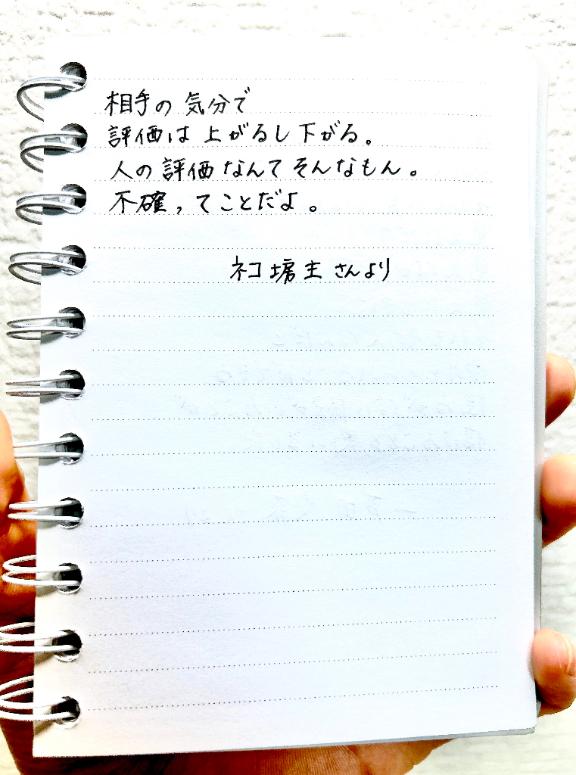 相手の気分で
評価は上がるし下がる。
人の評価なんてそんなもん。
不確かってことだよ。
ネコ坊主さんより